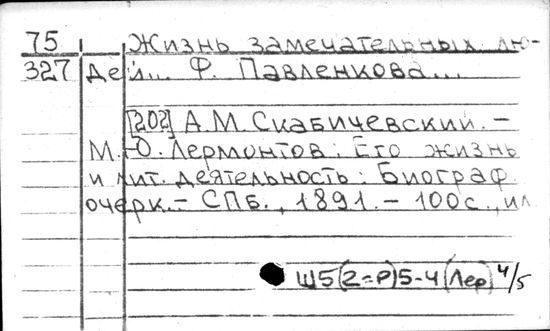 75 Жизнь замечательных лю-
327 дей... Ф. Павленкова...
[202] А.М. Скабичевский. –
М.Ю. Лермонтов: Его жизнь
и лит. деятельность: Биограф.
очерк. – СПб., 1891. – 100с., ил
Ш5(2=Р)5-4(Лер) 4/5